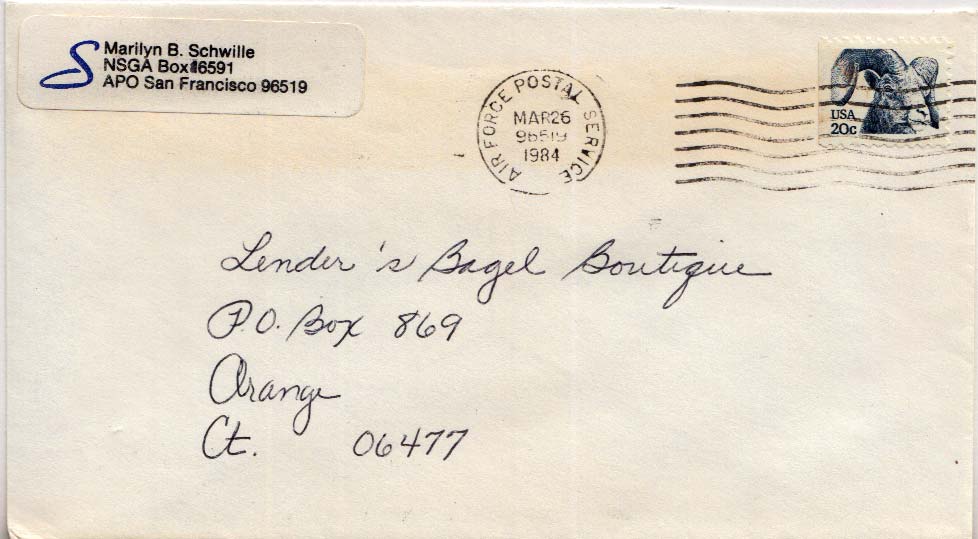 S
Marilyn B. Schwille
NSGA Box 16591
APO San Francisco 96519
AIR FORCE POSTAL SERVICE
MAR 26
96519
1984
USA
20c
Lender's Bagel Boutique
P.O. Box 869
Orange
Ct. 06477